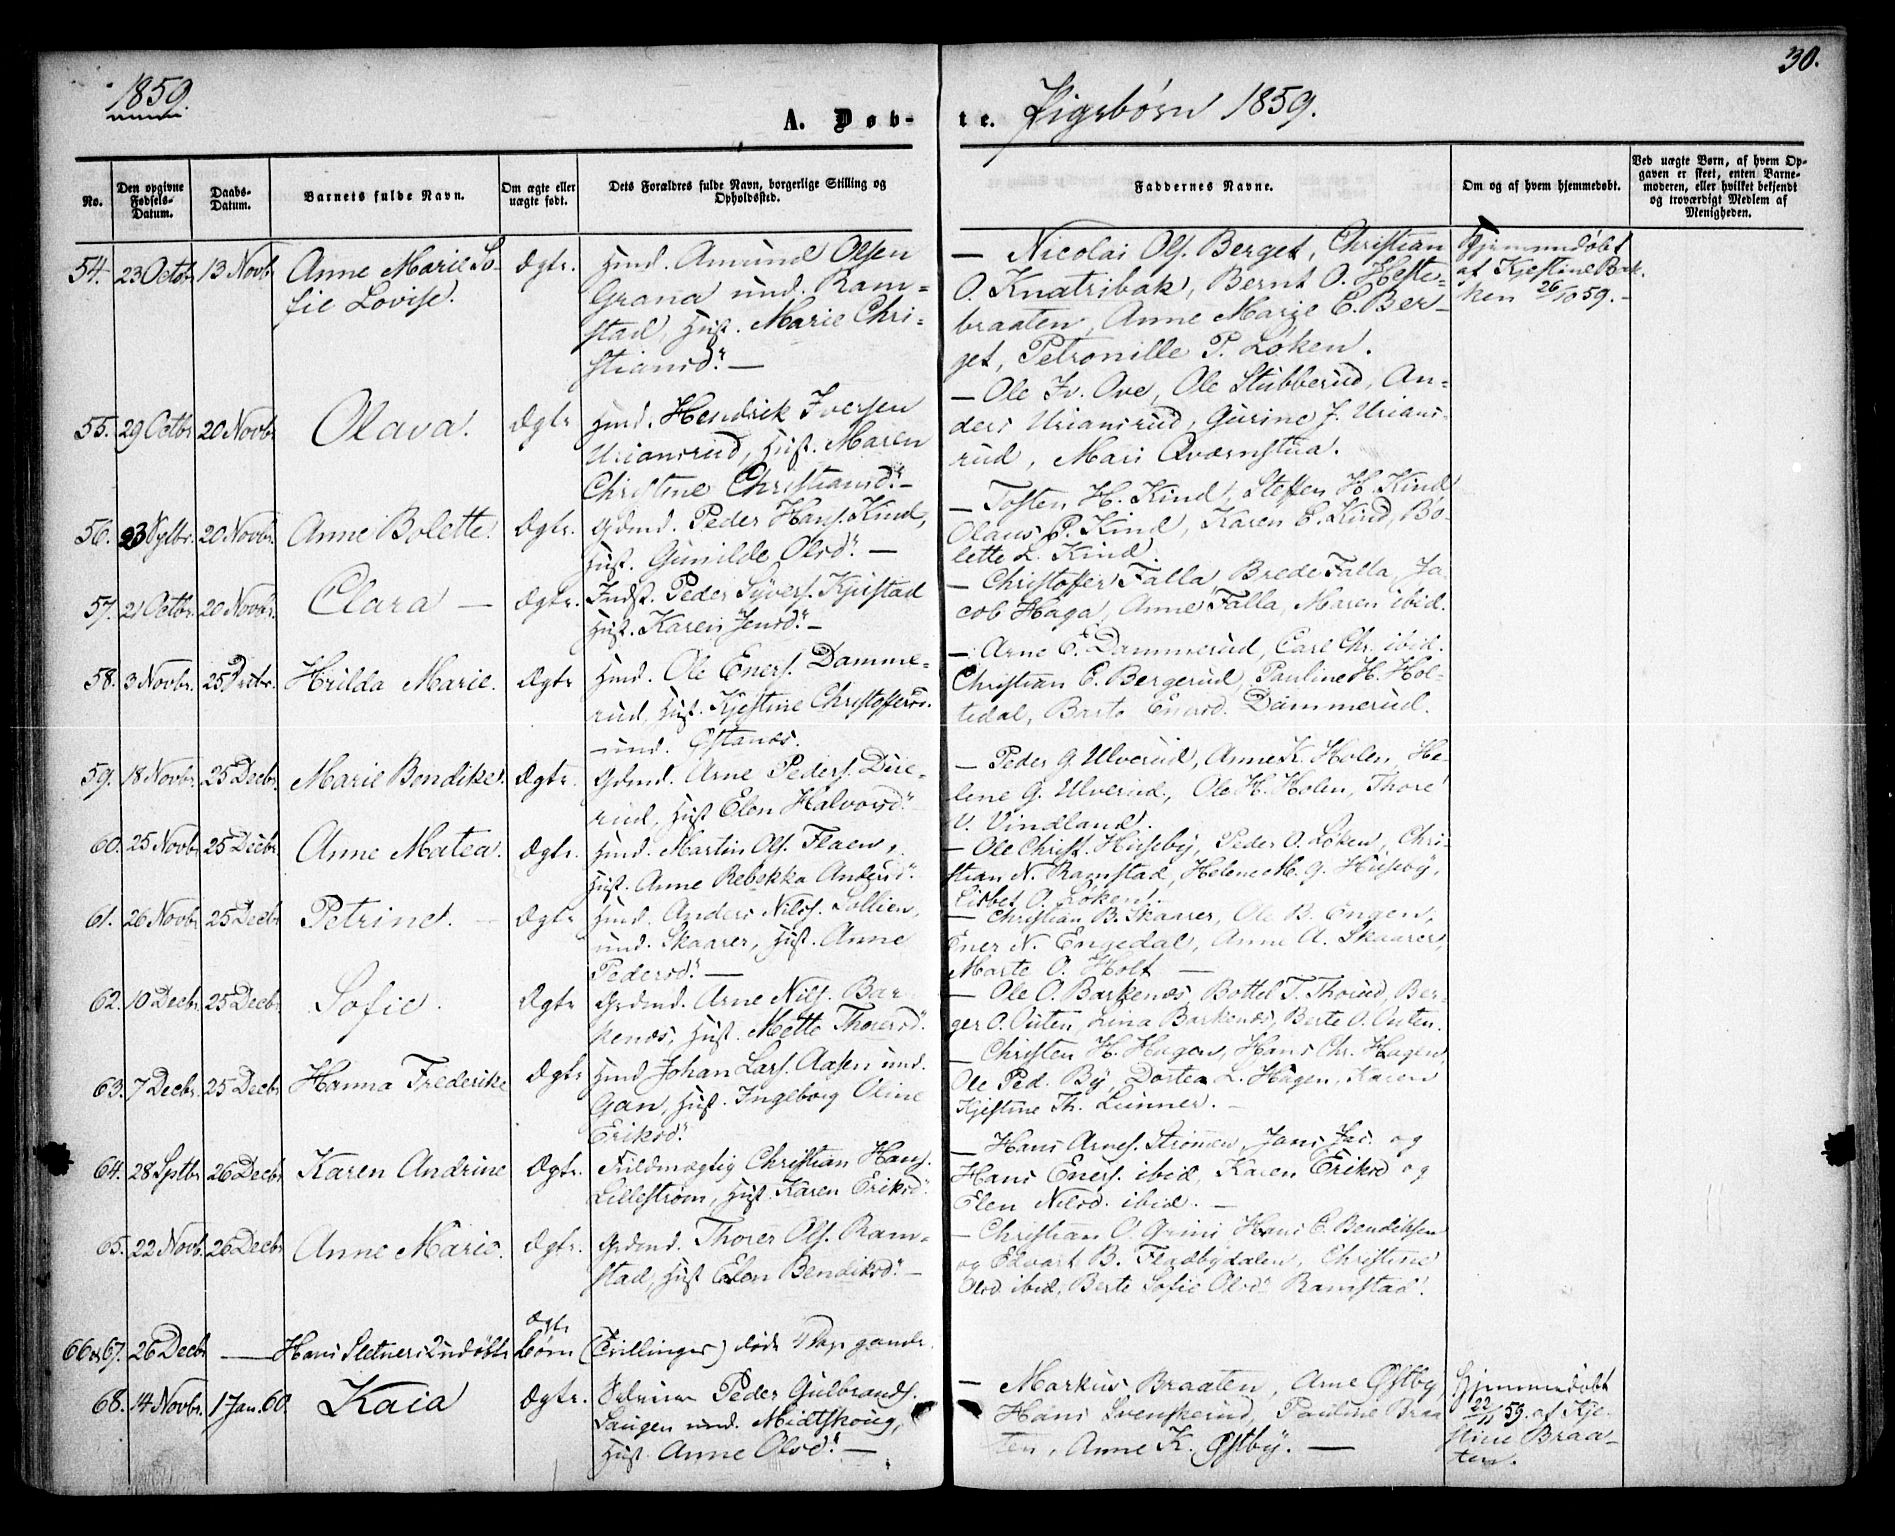 1859.
30.
A. Døb-
te. Pigebørn 1859.
No.
Den opgivne Fødsels-Datum.
Daabs-Datum.
Barnets fulde Navn.
Om ægte eller uægte født.
Dets Forældres fulde Navn, borgerlige Stilling og Opholdssted.
Faddernes Navne.
Om og af hvem hjemmedøbt.
Ved uægte Børn, af hvem Opgaven er skeet, enten Barnemoderen, eller hvilket bekjendt og troværdigt Medlem af Menigheden.
54. 23 Octob. 13 Novb. Anne Marie So-
fie Lovise.
Ægte.
Husmd. Amund Olsen
Grana und. Ram-
stad Hust. Marie Chri-
stiansd. —
— Nicolai Ols. Berget, Christian
O. Knatribak, Bernt O. Heste-
braaten, Anne Marie E. Ber-
get, Petronille P. Løken.
Hjemmedøbt
af Kjestine Bak-
ken 26/10 59. –
55. 29 Octbr. 20 Novbr. Olava.
Ægte
Husmd. Hendrik Iversen
Uriansrud, Hust. Maren
Christine Christiansd. –
— Ole Iv. Ove, Ole Stubberud, An-
ders Uriansrud, Gurine J. Urians-
rud, Mari Qværnstua.
56. 23 20 Novbr. Anne Bolette.
Ægte.
Grdmd. Peder Hans. Kind,
Hust. Gunilde Olsd. —
— Tosten H. Kind, Steffen H. Kind
Olaus P. Kind, Karen E. Kind, Bo-
lette L. Kind.
57. 21 Octbr. 20 Novbr. Clara —
Ægte.
Indst. Peder Syvers. Kjelstad
Hust. Karen Jensd. –
— Christoffer Falla Brede Falla, Ja-
cob Haga, Anne Falla, Maren ibid.
58. 3 Novbr. 25 Decbr. Hilda Marie.
Ægte
Husmd. Ole Eners. Damme-
rud, Hust. Kjestine Christoffersd.
– und. Østanes.
— Arne E. Dammerud, Carl Chr. ibid.
Christian E. Bergerud, Pauline H. Hol-
tedal, Berte Enersd. Dammerud.
59. 18 Novbr. 25 Decbr. Marie Bendike.
Ægte.
Grdmd. Arne Peders. Due-
rud, Hust Elen Halvorsd.
— Peder G. Ulverud, Anne K. Holen, He-
lene G. Ulverud, Ole H. Holen, Thore
V. Vindland.
60. 25 Novbr. 25 Decbr. Anne Matea.
Ægte.
Husmd. Martin Ols. Flaen,
Hust. Anne Rebekka Andersd.
— Ole Christ. Huseby, Peder O. Løken, Chri-
stian N. Ramstad, Helene M. G. Huseby,
Lisbet O. Løken.
61. 26 Novbr. 25 Decbr. Petrine. –
Ægte
Husmd. Anders Nils. Sollien,
und. Skaarer, Hust. Anne
Pedersd. —
— Christian B. Skaarer, Ole B. Engen,
Ener N. Engedal, Anne A. Skaarer,
Marte O. Holt —
62. 10 Decbr. 25 Decbr. Sofie.
Ægte
Grdmd. Arne Nils. Bar-
kenes, Hust. Mette Thoresd.
— Ole O. Barkenes, Bottel T. Thorud, Ber-
ger O. Outen, Lina Barkenes, Berte O. Outen.
63. 7 Decbr. 25 Decbr. Hanna Frederike
Ægte
Husmd Johan Lars. Aasen und.
Gan, Hust. Ingeborg Oline
Eriksd.
— Christen H. Hagen, Hans Chr. Hagen
Ole Ped. By, Dortea L. Hagen, Karen
Kjestine Th. Lunner. –
64. 28 Septbr. 26 Decbr. Karen Andrine
Ægte.
Fuldmægtig Christian Hans.
Lillestrøm, Hust. Karen Eriksd.
— Hans Arnes. Strømmen, Jans Jac. og
Hans Eners. ibid, Karen Eriksd og
Elen Nilsd. ibid. –
65. 22 Novb. 26 Decbr. Anne Marie.
Ægte.
Grdmd. Thorer Ols. Ram-
stad, Hust Elen Bendiksd. –
— Christian O. Grini Hans E. Bendiksen
og Edvart B. Fladbydalen, Christine
Olsd. ibid, Berte Sofie Olsd. Ramstad.
66 og 67. 26 Decbr — Hans Sletners 2 udøbte
Ægte
børn
(Tvillinger) døde 4 Dage gamle.
68. 14 Novbr. 1 Jan. 60. Kaia
Ægte.
Peder Gulbrands.
Haugen und. Midtskoug,
Hust. Anne Olsd. —
— Markus Braaten, Arne Østby
Hans Svenskerud, Pauline Braa-
ten, Anne K. Østby. —
Hjemmedøbt
22/11 59. af Kje-
stine Braa-
ten.